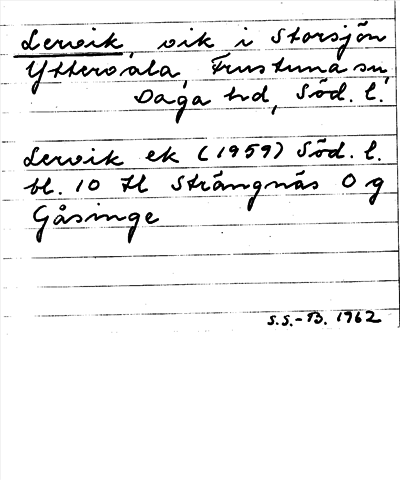 Lervik, vik i Storsjön
Yttervåla, Frustuna sn,
Daga hd, Söd. l.
Lervik ek (1959) Söd. l.
bl. 10 Hl Strängnäs O g
Gåsinge
S.S.-B. 1962